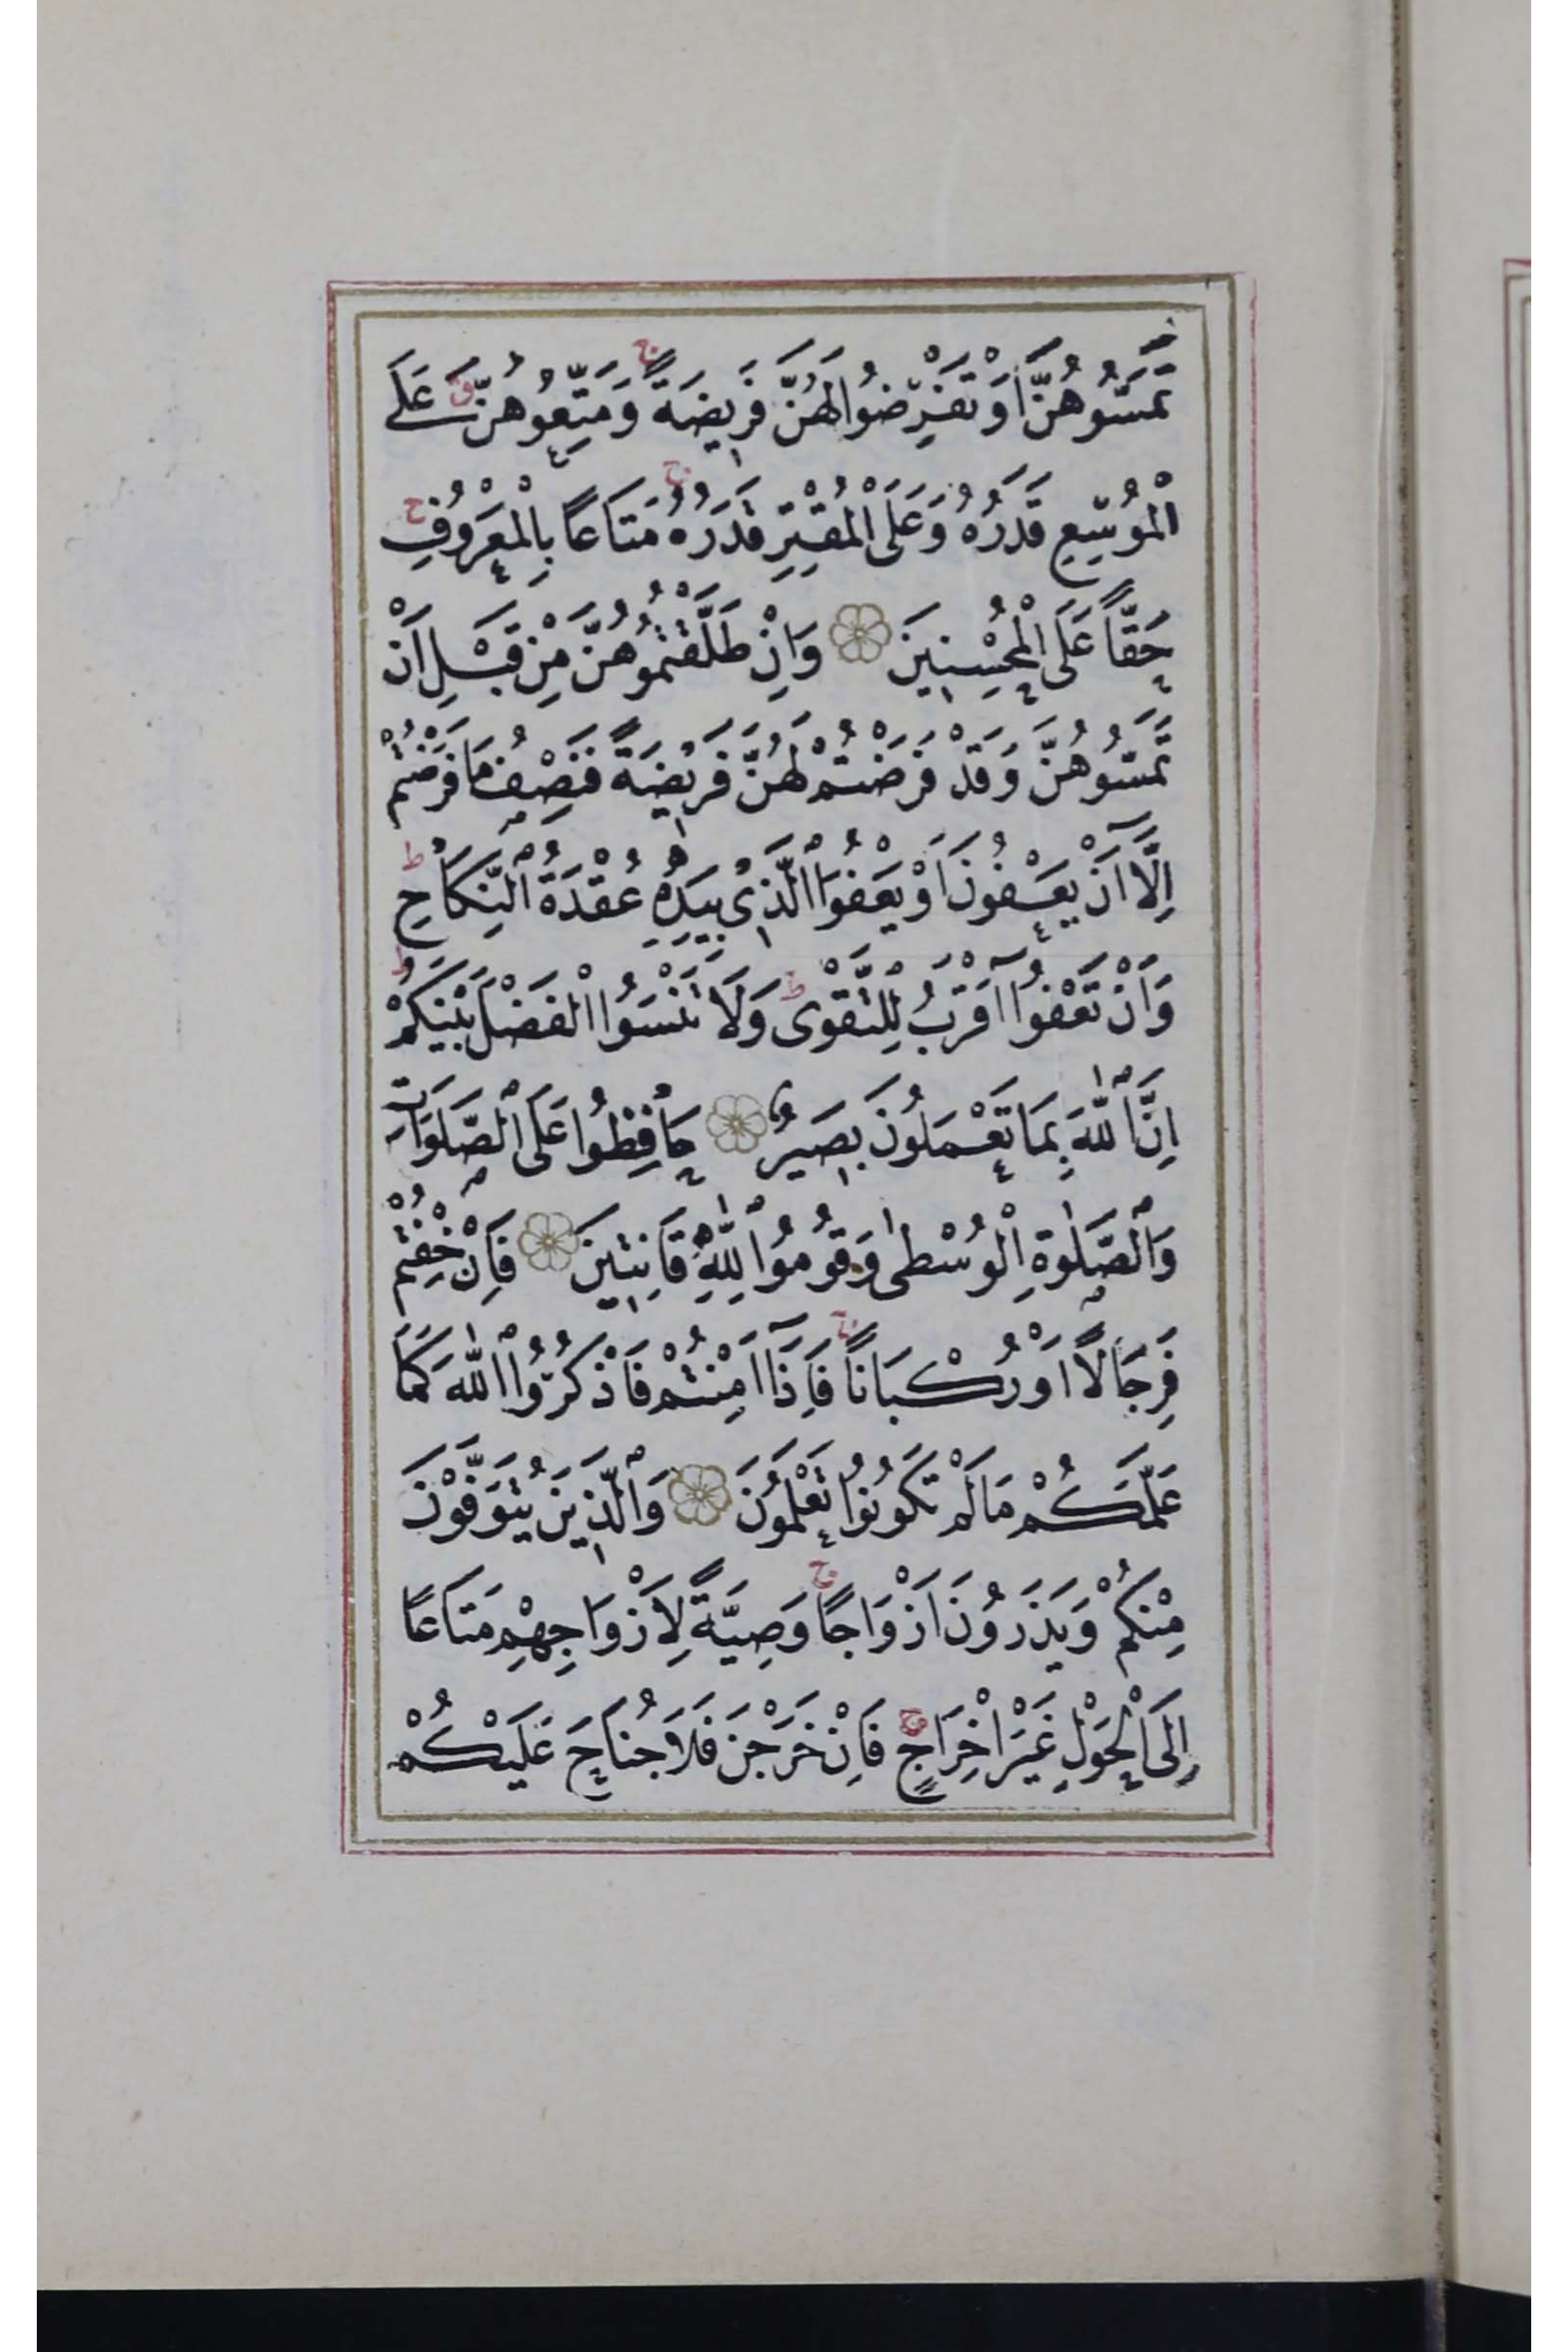 تَمَسُّوهُنَّ اَوْ تَفْرِضُوا لَهُنَّ فَرِيضَةً ج وَمَتِّعُوهُنَّ ق عَلَى
الْمُوسِعِ قَدَرُهُ وَعَلَى الْمُقْتِرِ قَدَرُهُ ج مَتَاعًا بِالْمَعْرُوفِ ج
حَقًّا عَلَى الْمُحْسِنِينَ وَاِنْ طَلَّقْتُمُوهُنَّ مِنْ قَبْلِ اَنْ
تَمَسُّوهُنَّ وَقَدْ فَرَضْتُمْ لَهُنَّ فَرِيضَةً فَنِصْفُ مَا فَرَضْتُمْ
اِلَّا اَنْ يَعْفُونَ اَوْ يَعْفُوَا الَّذِى بِيَدِهِ عُقْدَةُ النِّكَاحِ ط
وَاَنْ تَعْفُوا اَقْرَبُ لِلتَّقْوٰى ط وَلَا تَنْسَوُا الْفَضْلَ بَيْنَكُمْ ط
اِنَّ اللّٰهَ بِمَا تَعْمَلُونَ بَصِيرٌ حَافِظُوا عَلَى الصَّلَوَاتِ
وَالصَّلٰوةِ الْوُسْطٰى وَقُومُوا لِلّٰهِ قَانِتِينَ فَاِنْ خِفْتُمْ
فَرِجَالًا اَوْ رُكْبَانًا ج فَاِذَا اَمِنْتُمْ فَاذْكُرُوا اللّٰهَ كَمَا
عَلَّمَكُمْ مَا لَمْ تَكُونُوا تَعْلَمُونَ وَالَّذِينَ يُتَوَفَّوْنَ
مِنْكُمْ وَيَذَرُونَ اَزْوَاجًا ج وَصِيَّةً لِاَزْوَاجِهِمْ مَتَاعًا
اِلَى الْحَوْلِ غَيْرَ اِخْرَاجٍ ج فَاِنْ خَرَجْنَ فَلَا جُنَاحَ عَلَيْكُمْ